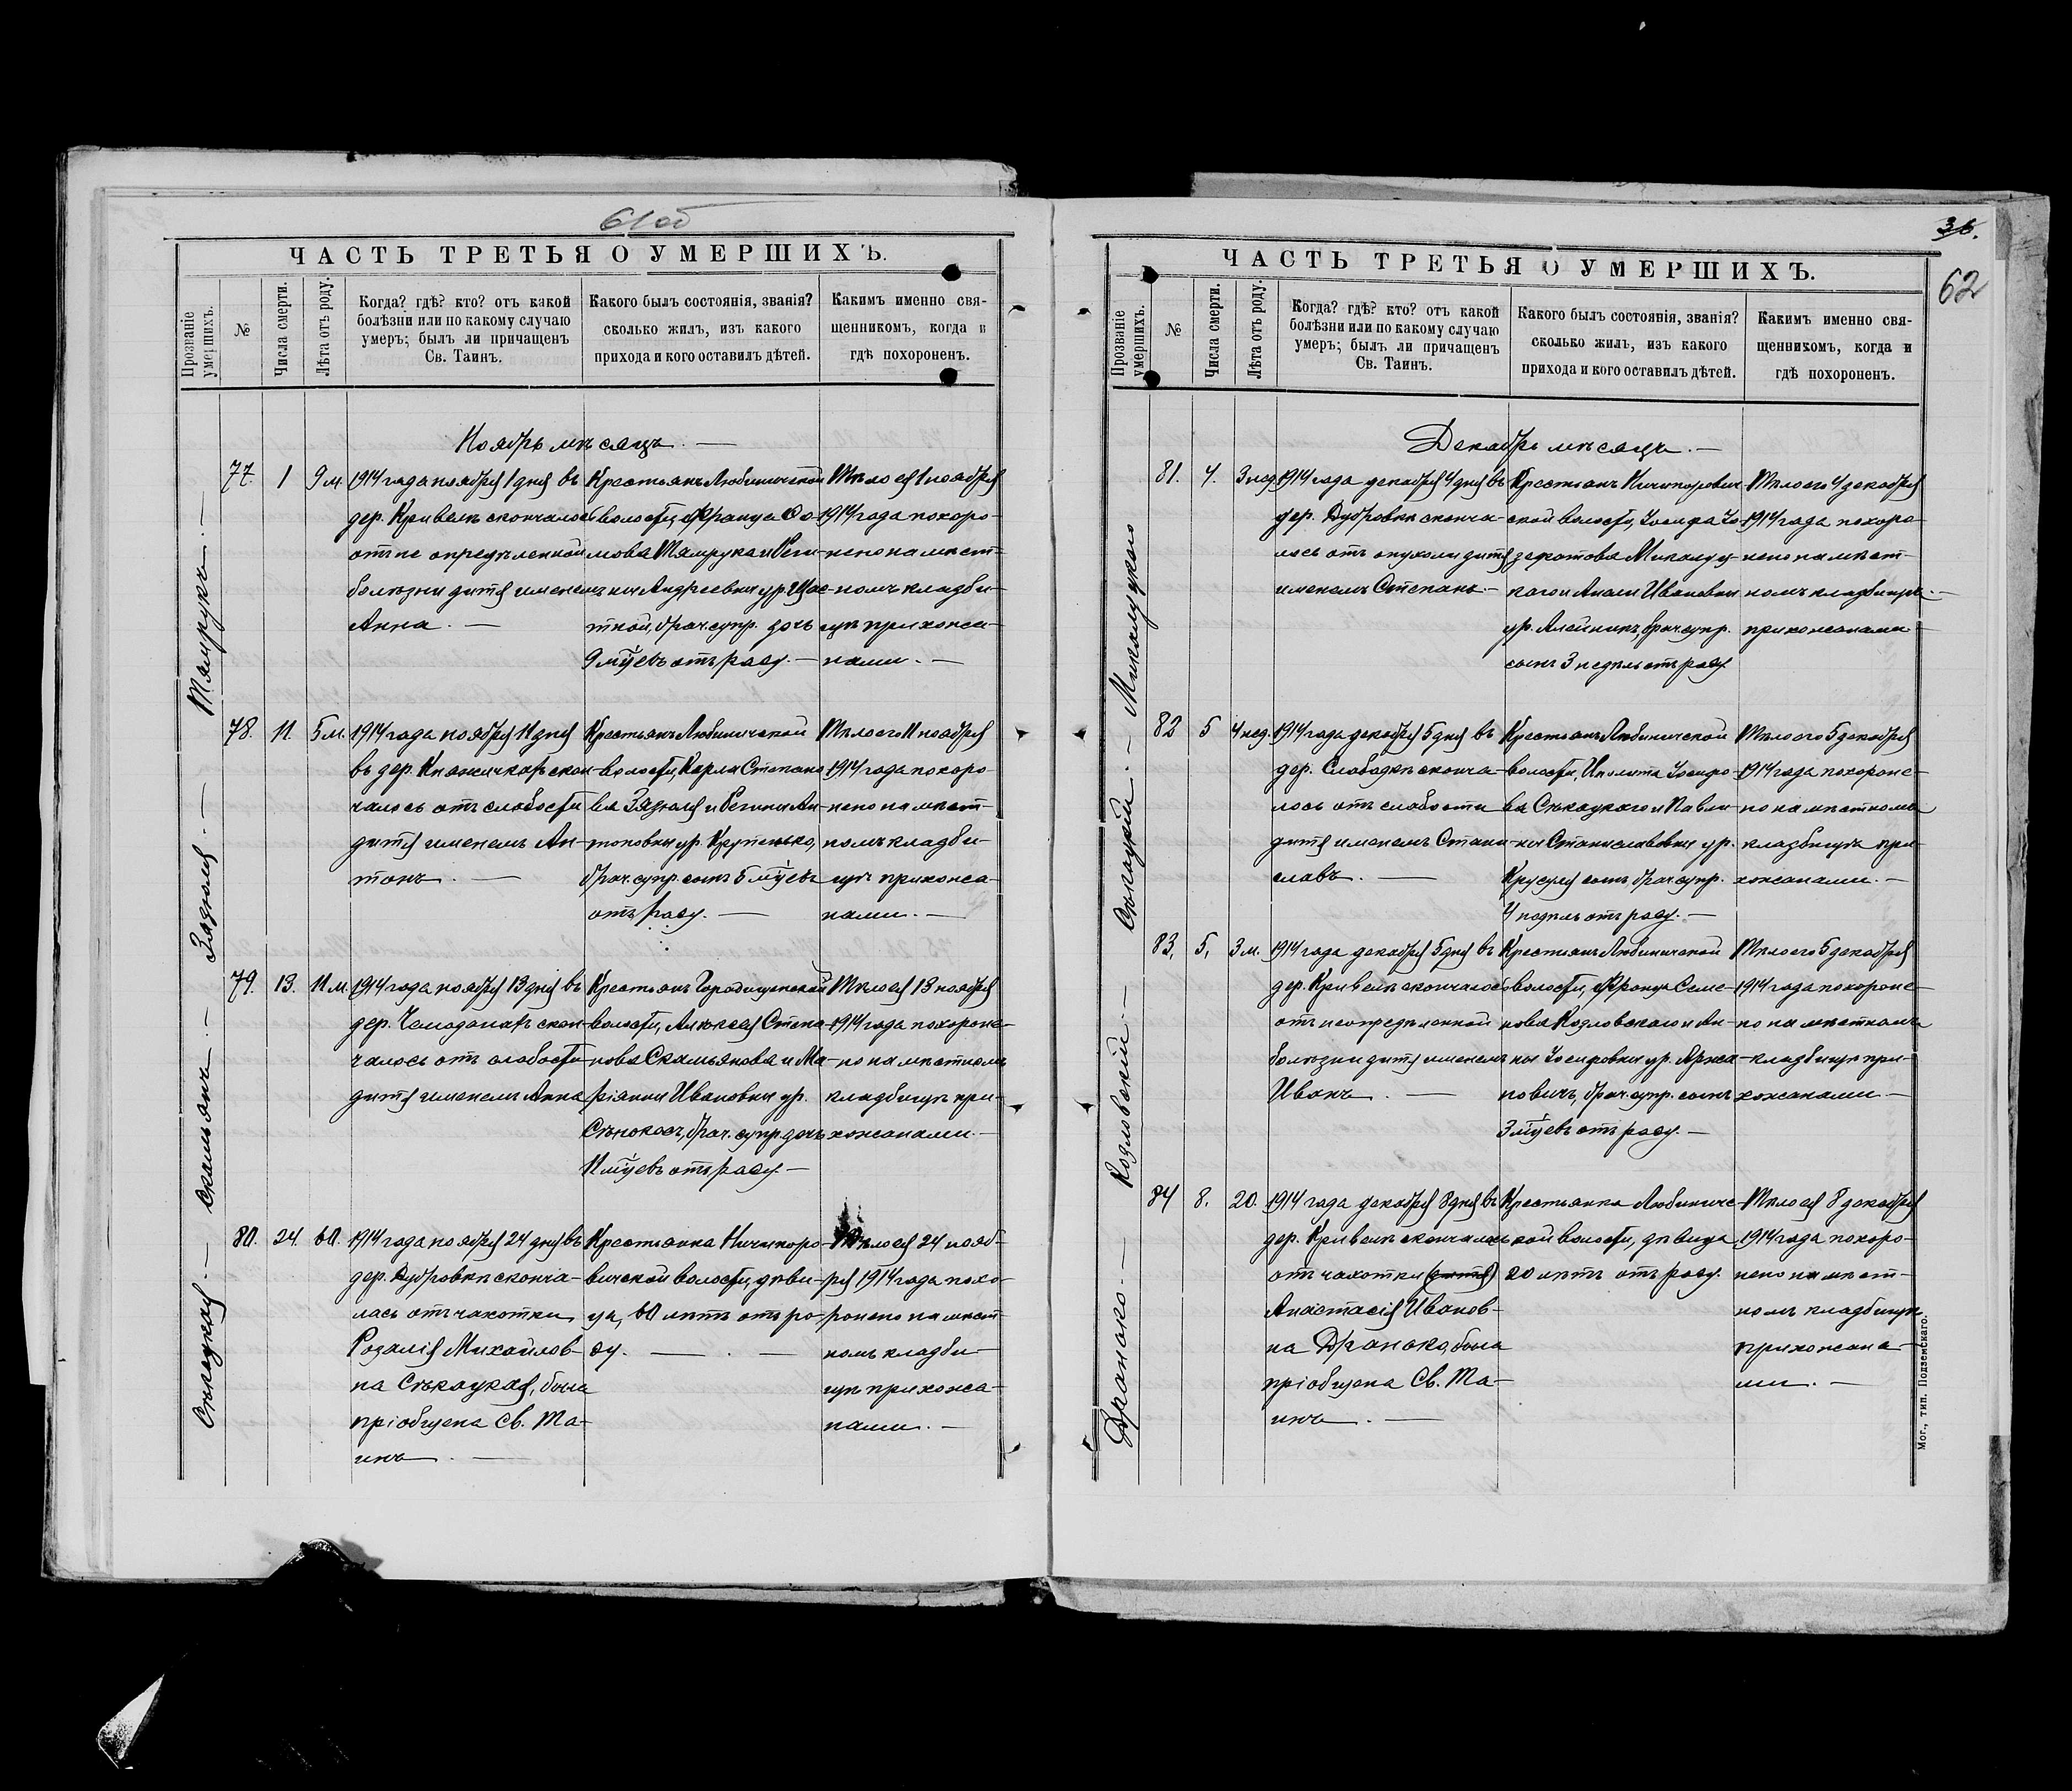 61 об
ЧАСТЬ ТРЕТЬЯ О УМЕРШИХЪ.
Прозваніе умершихъ.
№
Числа смерти.
Лѣта отъ роду.
Когда? гдѣ? кто? отъ какой
болѣзни или по какому случаю
умеръ; былъ ли причащенъ
Св. Таинъ.
Какого былъ состоянія, званія?
сколько жилъ, изъ какого
прихода и кого оставилъ дѣтей.
Какимъ именно свя-
щенникомъ, когда и
гдѣ похороненъ.
Ноябрь мѣсяцъ. —
Тямрукъ. —
77. 1 9 м.
1914 года ноября 1 дня въ
дер. Кривель скончалось
отъ неопредѣленной
болѣзни дитя именемъ
Анна. —
Крестьянъ Любиничской
волости, Франца
мова Тямрука и Реги-
ны Андреевны ур. Щас-
тной, брач. супр. дочь
9 м̃цевъ отъ роду. —
Тѣло ея 1 ноября
1914 года похоро-
нено на мѣст-
номъ кладби-
щѣ прихожа-
нами. —
Зязюля. —
78. 11. 5 м.
1914 года ноября 11 дня
въ дер. скон-
чалось отъ слабости
дитя именемъ Ан-
тонъ. —
Крестьянъ Любиничской
волости, Карла Степано-
ва Зязюля и Регины Ан-
тоновны ур. Крупенько,
брач. супр. сынъ 5 м̃цевъ
отъ роду. —
Тѣло его 11 ноября
1914 года похоро-
нено на мѣст-
номъ кладби-
щѣ прихожа-
нами. —
Скамьянъ. —
79. 13. 11 м.
1914 года ноября 13 дня въ
дер. Чемоданахъ скон-
чалось отъ слабости
дитя именемъ Анна
Крестьянъ Городищенской
волости, Алексея Степа-
нова Скамьянова и Ма-
ріанны Ивановны ур.
Сѣнокосъ, брач. супр. дочь
11 м̃цевъ отъ роду —
Тѣло ея 13 ноября
1914 года похороне-
но на мѣстномъ
кладбищѣ при-
хожанами. —
Сѣкацкая. —
80. 24. 60.
1914 года ноября 24 дня въ
дер. Дубровкѣ сконча-
лась отъ чахотки
Розалія Михайлов-
на Сѣкацкая, была
пріобщена Св. Та-
инъ. —
Крестьянка Ничипоро-
вичской волости, дѣви-
ца, 60 лѣтъ отъ ро-
ду. —
Тѣло ея 24 нояб-
ря 1914 года похо-
ронено на мѣст-
номъ кладби-
щѣ прихожа-
нами. —
36.
62
ЧАСТЬ ТРЕТЬЯ О УМЕРШИХЪ.
Прозваніе умершихъ.
№
Числа смерти.
Лѣта отъ роду.
Когда? гдѣ? кто? отъ какой
болѣзни или по какому случаю
умеръ; былъ ли причащенъ
Св. Таинъ.
Какого былъ состоянія, званія?
сколько жилъ, изъ какого
прихода и кого оставилъ дѣтей.
Какимъ именно свя-
щенникомъ, когда и
гдѣ похороненъ.
Декабрь мѣсяцъ. —
Микалуцкаго
81. 4. 3 нед.
1914 года декабря 4 дня въ
дер. Дубровкѣ сконча-
лось отъ опухоли дитя
именемъ Степанъ. —
Крестьянъ Ничипорович-
ской волости, Іосифа Іо-
зефатова Микалуц-
каго и Анели Ивановны
ур. Алейникъ, брач. супр.
сынъ 3 недѣль отъ роду
Тѣло его 4 декабря
1914 года похоро-
нено на мѣст-
номъ кладбищѣ. —
прихожанами
Сѣкацкій. —
82 5 4 нед.
1914 года декабря 5 дня въ
дер. Слободкѣ сконча-
лось отъ слабости
дитя именемъ Стани-
славъ. —
Крестьянъ Любиничской
волости, Иполита Іосифо-
ва Сѣкацкаго и Павли-
ны Станиславовны ур.
сынъ, брач. супр.
4 недѣль отъ роду. —
Тѣло его 5 декабря
1914 года похороне-
но на мѣстномъ
кладбищѣ при-
хожанами. —
Козловскій. —
83, 5, 3 м.
1914 года декабря 5 дня въ
дер. Кривель скончалось
отъ неопредѣленной
болѣзни дитя именемъ
Иванъ. —
Крестьянъ Любиничской
волости, Франца Семе-
нова Козловскаго и Ан-
ны Іосифовны ур. Аржа-
новичъ, брач. супр. сынъ
3 м̃цевъ отъ роду. —
Тѣло его 5 декабря
1914 года похороне-
но на мѣстномъ
кладбищѣ при-
хожанами —
Дранько. —
84 8. 20.
1914 года декабря 8 дня въ
дер. Кривель скончалась
отъ чахотки (дитя)
Анастасія Иванов-
на Дранько, была
пріобщена Св. Та-
инъ. —
Крестьянка Любиниче-
ской волости, дѣвица
20 лѣтъ отъ роду.
Тѣло ея 8 декабря
1914 года похоро-
нено на мѣст-
номъ кладбищѣ
прихожана-
ми. —
Мог., тип. Подземскаго.